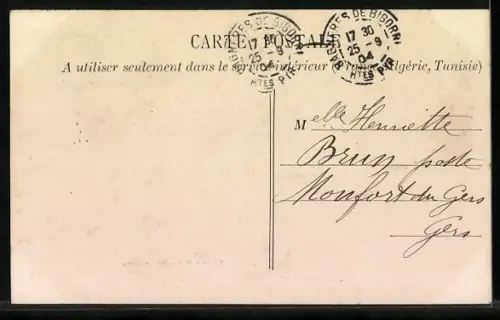 CARTE POSTALE
A utiliser seulement dans le service intérieur (France, Algérie, Tunisie)
BAGNÈRES DE BIGORRE
17 30
25 - 9
04
HTES PYR.
BAGNÈRES DE BIGORRE
17 30
25 - 9
04
HTES PYR.
Melle Henriette
Brun poste
Monfort du Gers
Gers